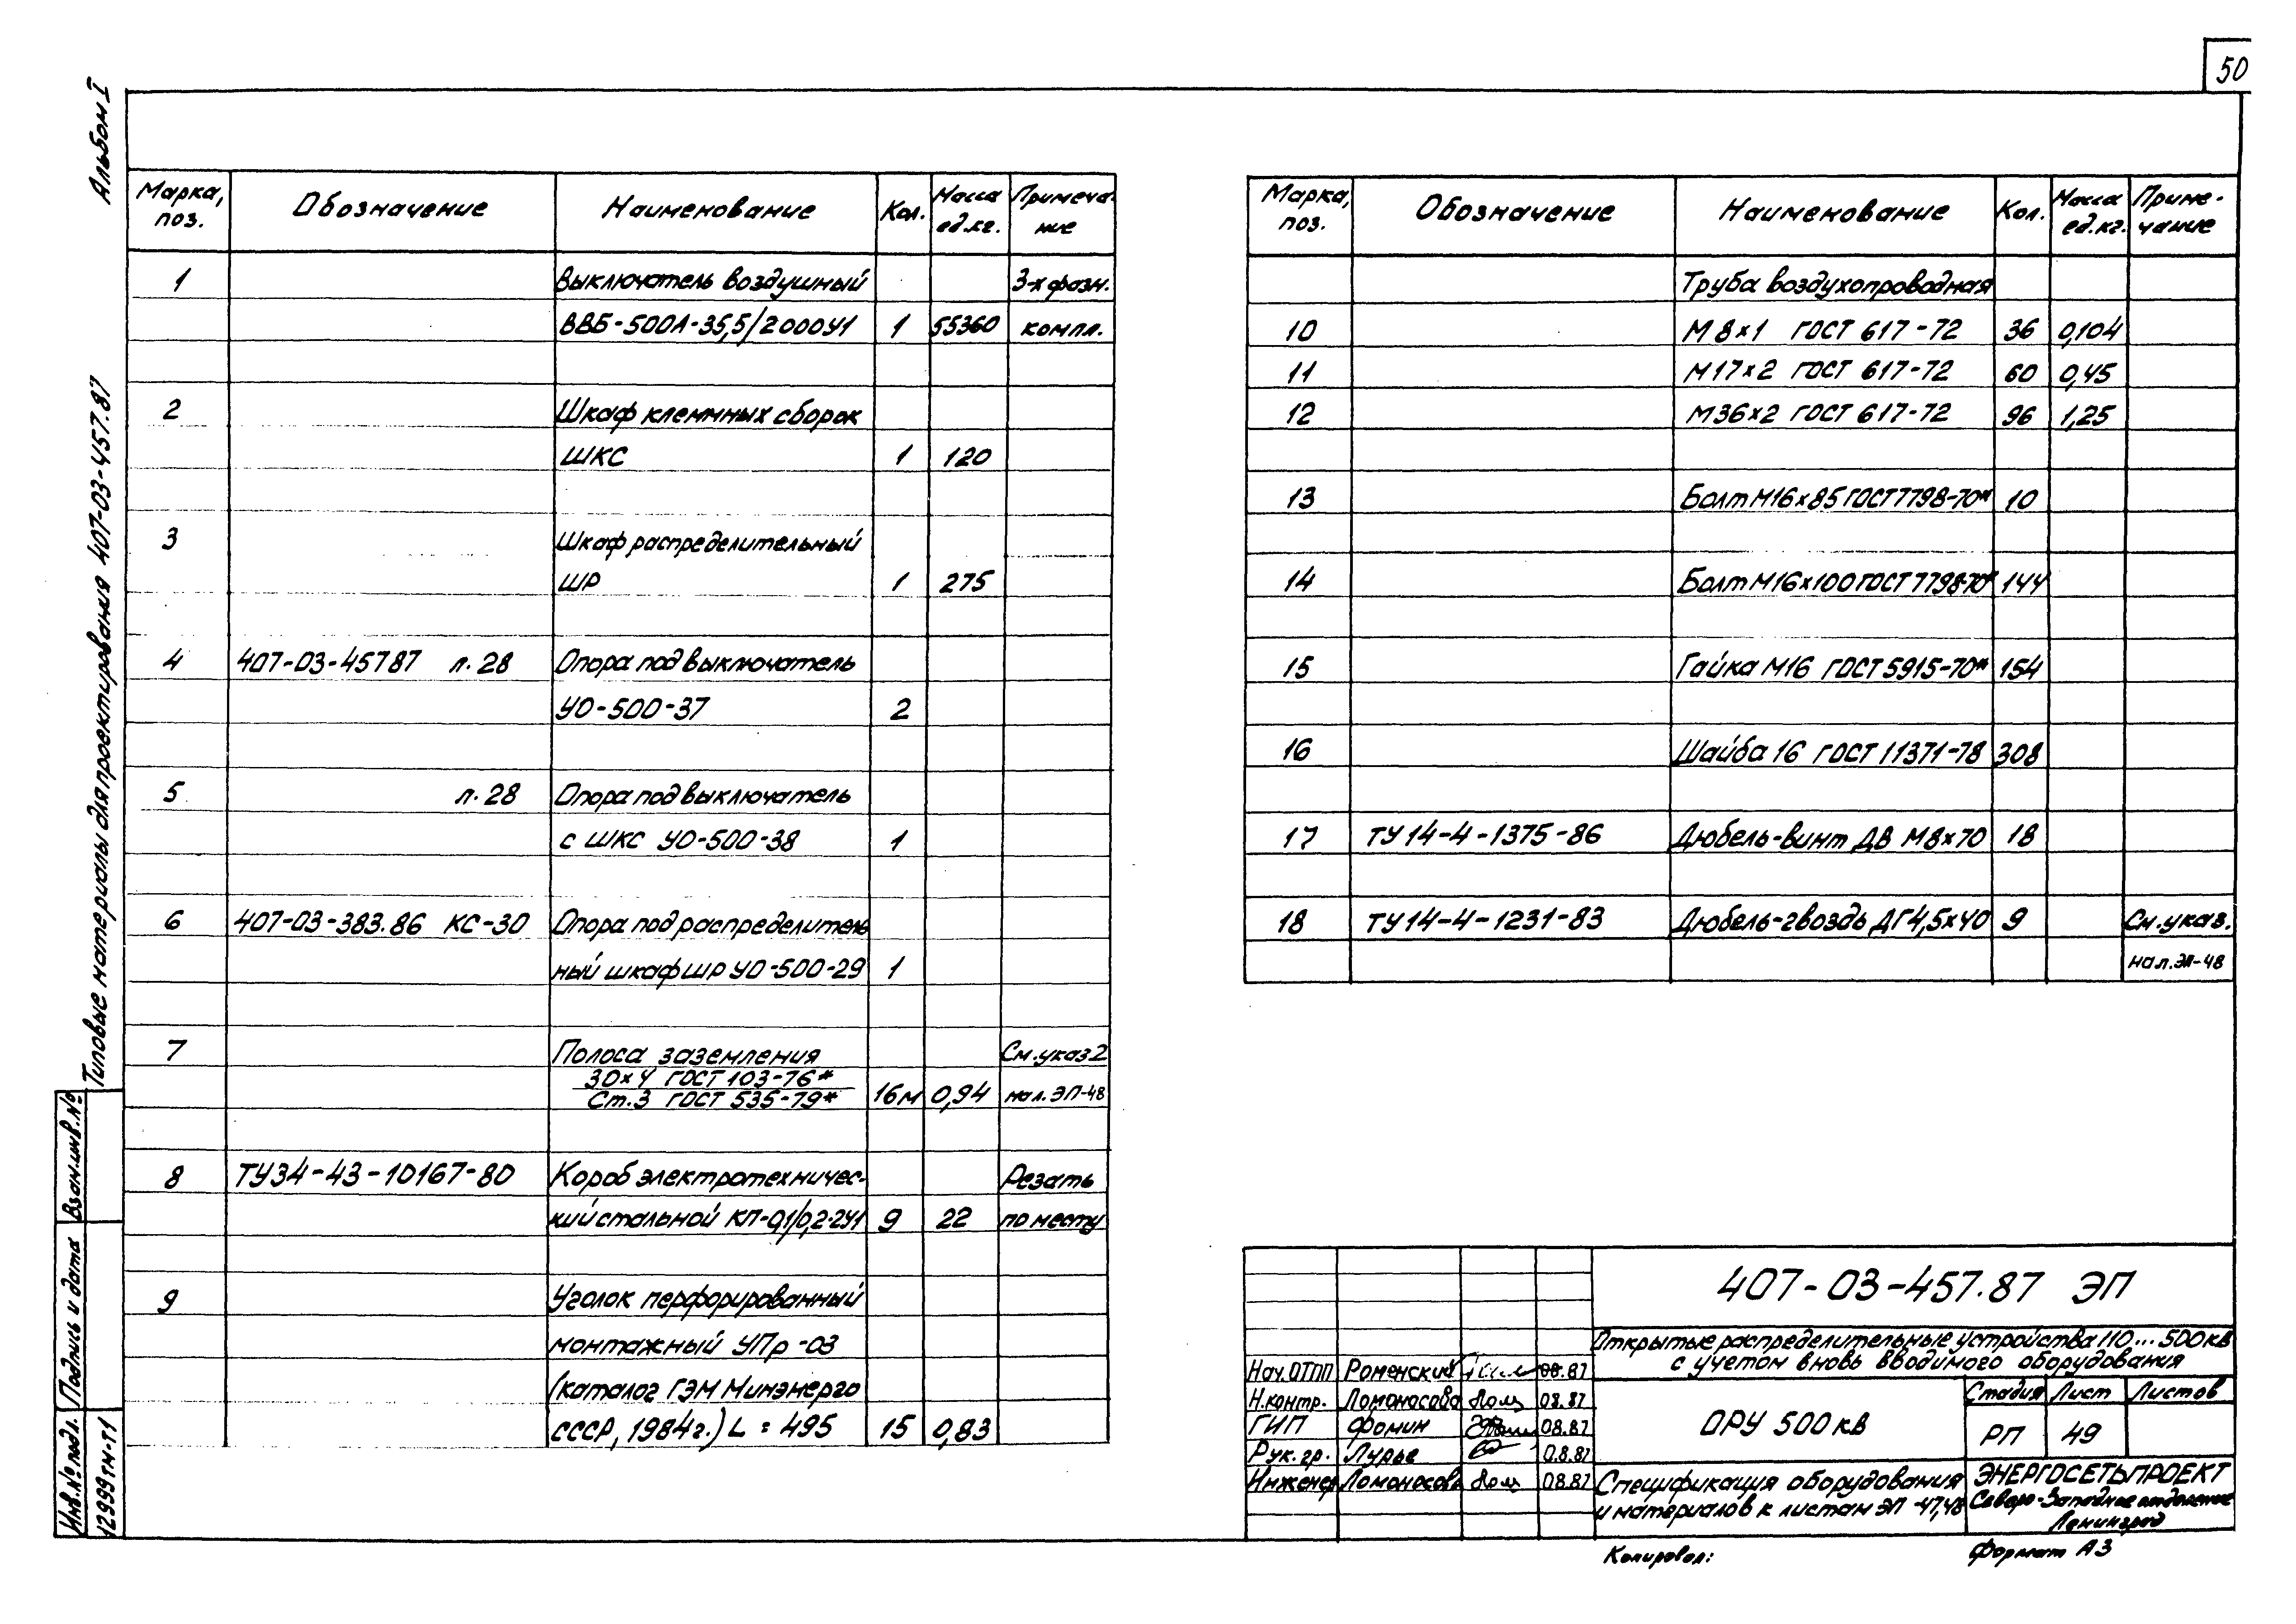 50
Альбом I
Типовые материалы для проектирования 407-03-457.87
Взам.инв.№
Подпись и дата
Инв.№ подл.
12999тм-т1
Марка, поз. Обозначение Наименование Кол. Масса ед.кг. Примеча-ние
1 Выключатель воздушный 3-х фазн.
ВВБ-500А-35,5/2000У1 1 55360 компл.
2 Шкаф клеммных сборок
ШКС 1 120
3 Шкаф распределительный
ШР 1 275
4 407-03-45787 л.28 Опора под выключатель
УО-500-37 2
5 л.28 Опора под выключатель
с ШКС УО-500-38 1
6 407-03-383.86 КС-30 Опора под распределитель
ный шкаф ШР УО-500-29 1
7 Полоса заземления См.указ 2
30х4 ГОСТ 103-76*
Ст.3 ГОСТ 535-79* 16м 0,94 на л. ЭП-48
8 ТУ34-43-10167-80 Короб электротехничес- Резать
кий стальной КП-0,1/0,2-2У1 9 22 по месту
9 Уголок перфорированный
монтажный УПр-03
(каталог ГЭМ Минэнерго
СССР, 1984г.) L = 495 15 0,83
Марка, поз. Обозначение Наименование Кол. Масса ед.кг. Приме-чание
Труба воздухопроводная
10 М 8х1 ГОСТ 617-72 36 0,104
11 М17х2 ГОСТ 617-72 60 0,45
12 М36х2 ГОСТ 617-72 96 1,25
13 Болт М16х85 ГОСТ7798-70* 10
14 Болт М16х100 ГОСТ 7798-70* 144
15 Гайка М16 ГОСТ 5915-70* 154
16 Шайба 16 ГОСТ 11371-78 308
17 ТУ14-4-1375-86 Дюбель-винт ДВ М8х70 18
18 ТУ14-4-1231-83 Дюбель-гвоздь ДГ4,5х40 9 См.указ.
на л.ЭП-48
407-03-457.87 ЭП
Открытые распределительные устройства 110...500кв
с учетом вновь вводимого оборудования
Нач.ОТПП Роменский 08.87
Н.контр. Ломоносова Лом 08.87
ГИП Фомин 08.87
Рук.гр. Лурье 08.87
Инженер Ломоносова Лом 08.87
ОРУ 500 кв
Стадия Лист Листов
РП 49
Спецификация оборудования
и материалов к листам ЭП -47,48
ЭНЕРГОСЕТЬПРОЕКТ
Северо-Западное отделение
Ленинград
Копировал:
Формат А3